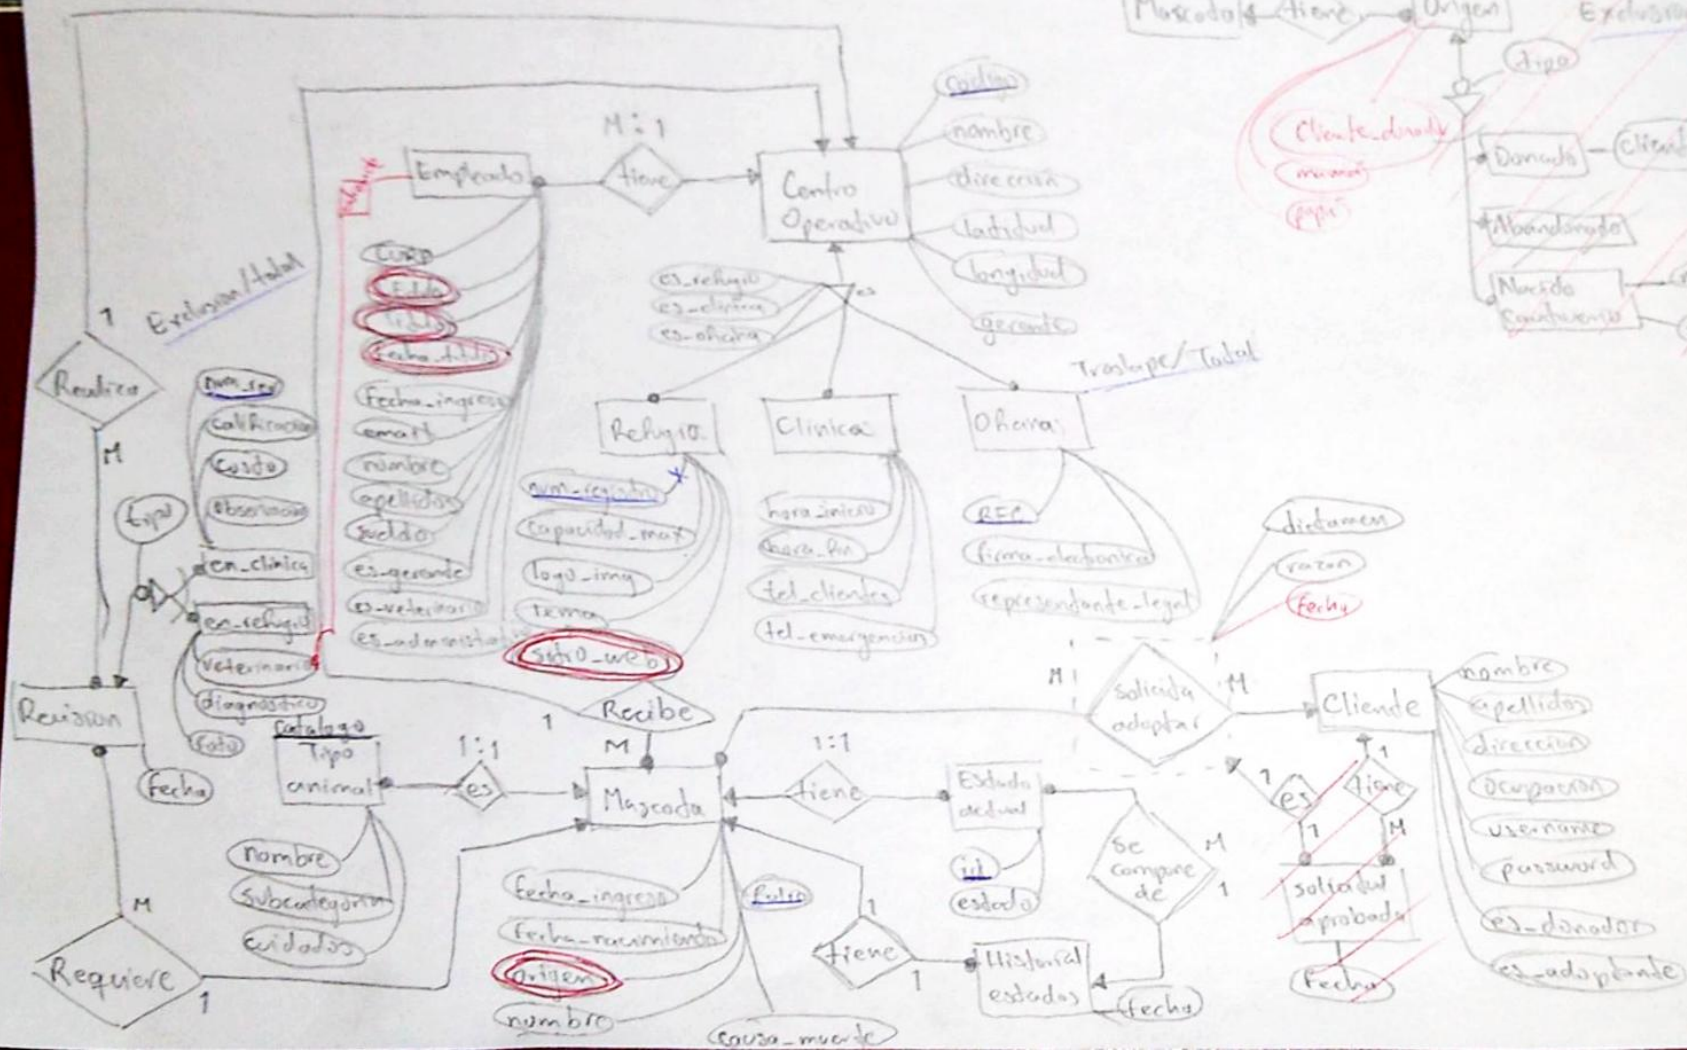 Mascota
tiene
Origen
Exclusion
tipo
Cliente_donador
mama
papa
Donado
Cliente
Abandonado
Nacido
Cautiverio
M:1
Empleado
tiene
Centro
Operativo
codigo
nombre
direccion
latitud
longitud
gerente
CURP
Titulo
Fecha_titulo
fecha_ingreso
email
nombre
apellidos
sueldo
es_gerente
es_veterinario
es_administrativo
es_refugio
es_clinica
es_oficina
es
Traslape/Total
Refugio
Clinica
Oficina
num_registro
capacidad_max
logo_img
lema
sitio_web
hora_inicio
hora_fin
tel_clientes
tel_emergencias
RFC
firma_electronica
representante_legal
Exclusion/total
1
Realiza
M
calificacion
Costo
observacion
tipo
en_clinica
en_refugio
veterinario
diagnostico
foto
Revision
fecha
M
Requiere
1
catalogo
Tipo
animal
nombre
subcategoria
cuidados
1:1
es
1
Recibe
M
Mascota
fecha_ingreso
fecha_nacimiento
origen
nombre
folio
causa_muerte
1:1
tiene
Estado
actual
id
estado
se
compone
de
M
1
1
tiene
1
Historial
estados
fecha
dictamen
razon
fecha
M
solicita
adoptar
M
Cliente
nombre
apellidos
direccion
ocupacion
username
password
es_donador
es_adoptante
1
es
1
1
tiene
M
solicitud
aprobada
Fecha